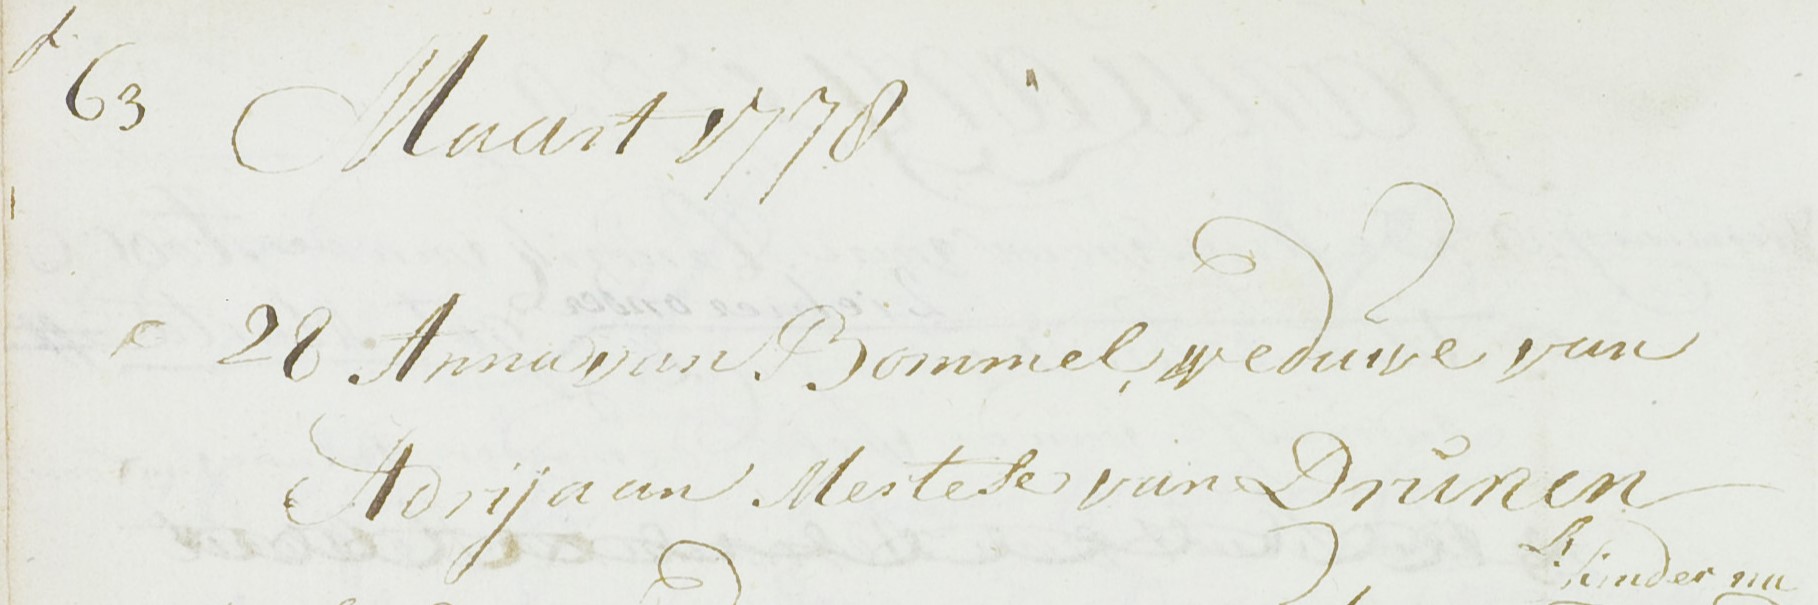 63 Maart 1778
28 Anna van Bommel, weduwe van
Adrijaan Mertese van Drunen
kinder na